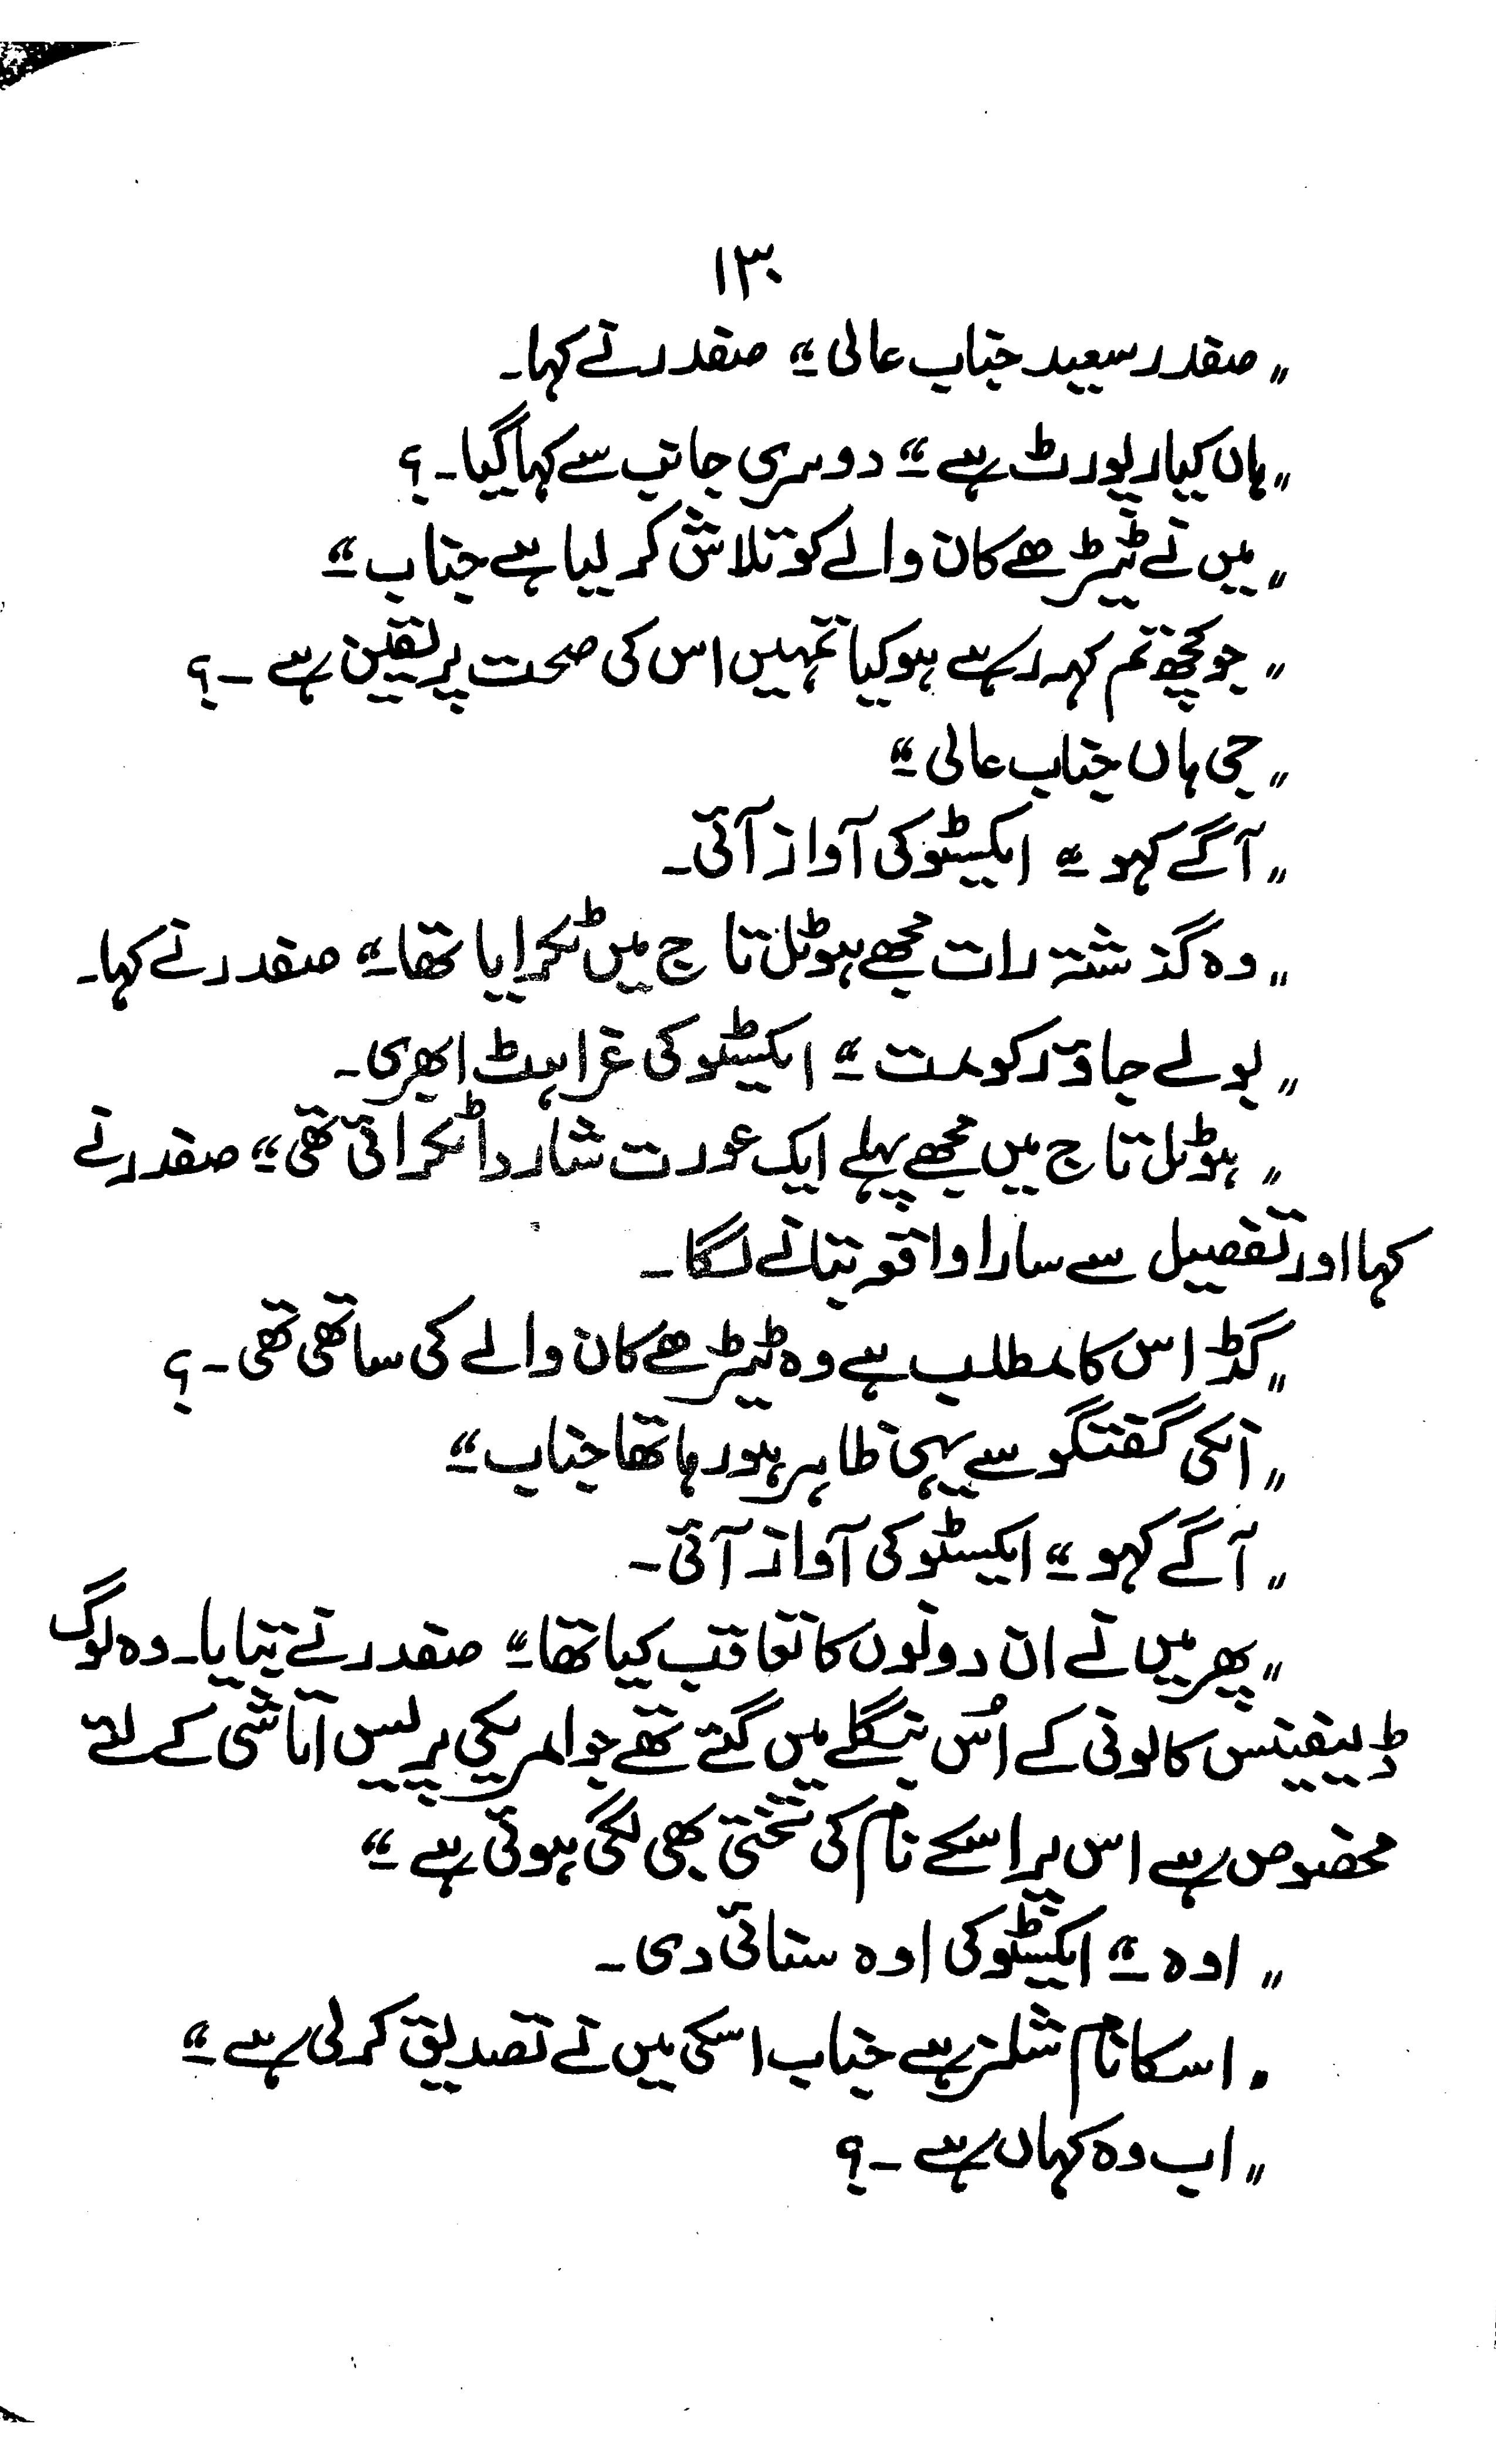 ۱۳۰
„ صفدر سعید جناب عالی “ صفدر نے کہا۔
„ ہاں کیا رپورٹ ہے “ دوسری جانب سے کہا گیا۔ ؟
„ میں نے ٹیڑھے کان والے کو تلاش کر لیا ہے جناب “
„ جو کچھ تم کہہ رہے ہو کیا تمہیں اس کی صحت پر یقین ہے ۔ ؟
„ جی ہاں جناب عالی “
„ آگے کہو “ ایکسٹو کی آواز آئی۔
„ وہ گذشتہ رات مجھے ہوٹل تاج میں ٹکرایا تھا “ صفدر نے کہا۔
„ بولے جاؤ رکو مت “ ایکسٹو کی غراہٹ ابھری۔
„ ہوٹل تاج میں مجھے پہلے ایک عورت شاردا ٹکرائی تھی “ صفدر نے
کہا اور تفصیل سے سارا واقعہ بتانے لگا۔
„ گڈ اس کا مطلب ہے وہ ٹیڑھے کان والے کی ساتھی تھی ۔ ؟
„ انکی گفتگو سے یہی ظاہر ہو رہا تھا جناب “
„ آگے کہو “ ایکسٹو کی آواز آئی ۔
„ پھر میں نے ان دونوں کا تعاقب کیا تھا “ صفدر نے بتایا۔ وہ لوگ
ڈیفینس کالونی کے اُس بنگلے میں گئے تھے جو امریکی پریس اتاشی کے لئے
مخصوص ہے اس پر اسکے نام کی تختی بھی لگی ہوئی ہے “
„ اوہ “ ایکسٹو کی اوہ سنائی دی ۔
„ اسکا نام شلز ہے جناب اسکی میں نے تصدیق کر لی ہے “
„ اب وہ کہاں ہے ۔ ؟